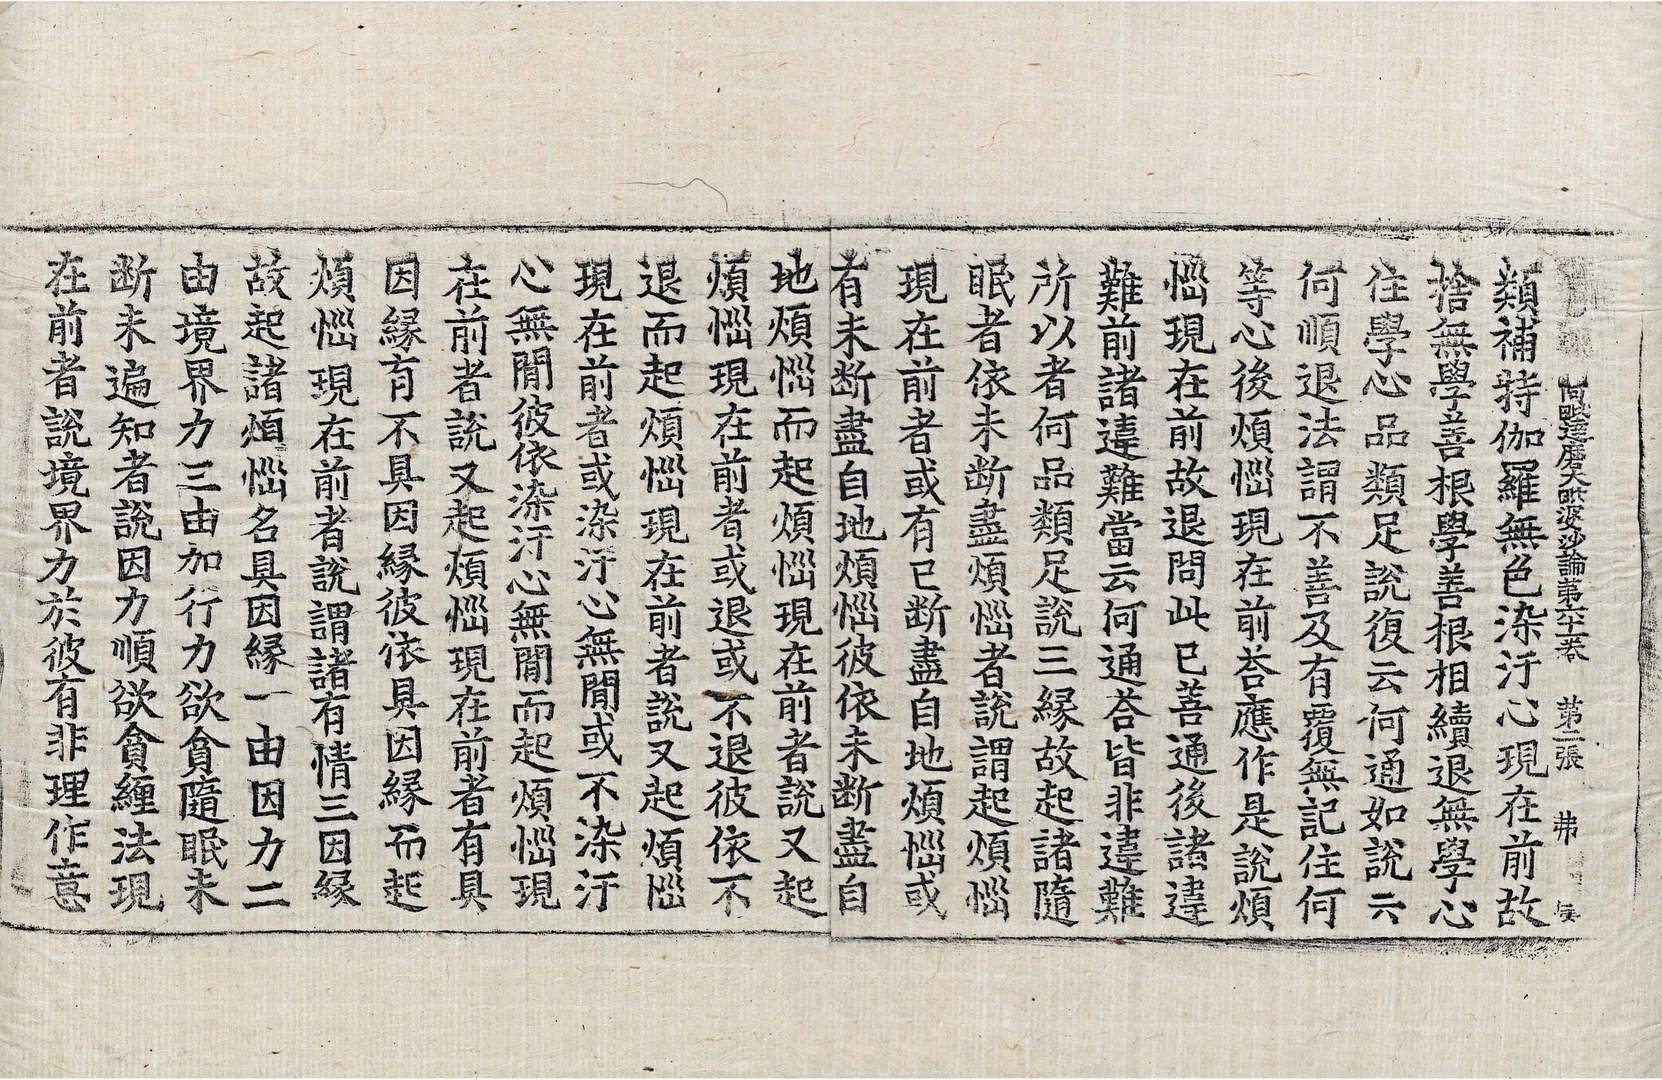 阿毗達磨大毗婆沙論第六十一卷 第二張 弗
類補特伽羅無色染汙心現在前故
捨無學善根學善根相續退無學心
住學心品類足說復云何通如說云
何順退法謂不善及有覆無記住何
等心後煩惱現在前荅應作是說煩
惱現在前故退問此已善通後諸違
難前諸違難當云何通荅皆非違難
所以者何品類足說三縁故起諸隨
眠者依未断盡煩惱者說謂起煩惱
現在前者或有已断盡自地煩惱或
有未断盡自地煩惱彼依未断盡自
地煩惱而起煩惱現在前者說又起
煩惱現在前者或退或不退彼依不
退而起煩惱現在前者說又起煩惱
現在前者或染汙心無間或不染汙
心無間彼依染汙心無間而起煩惱現
在前者說又起煩惱現在前者有具
因縁有不具因縁彼依具因縁而起
煩惱現在前者說謂諸有情三因縁
故起諸煩惱名具因縁一由因力二
由境界力三由加行力欲貪隨眠未
断未遍知者說因力順欲貪纏法現
在前者說境界力於彼有非理作意